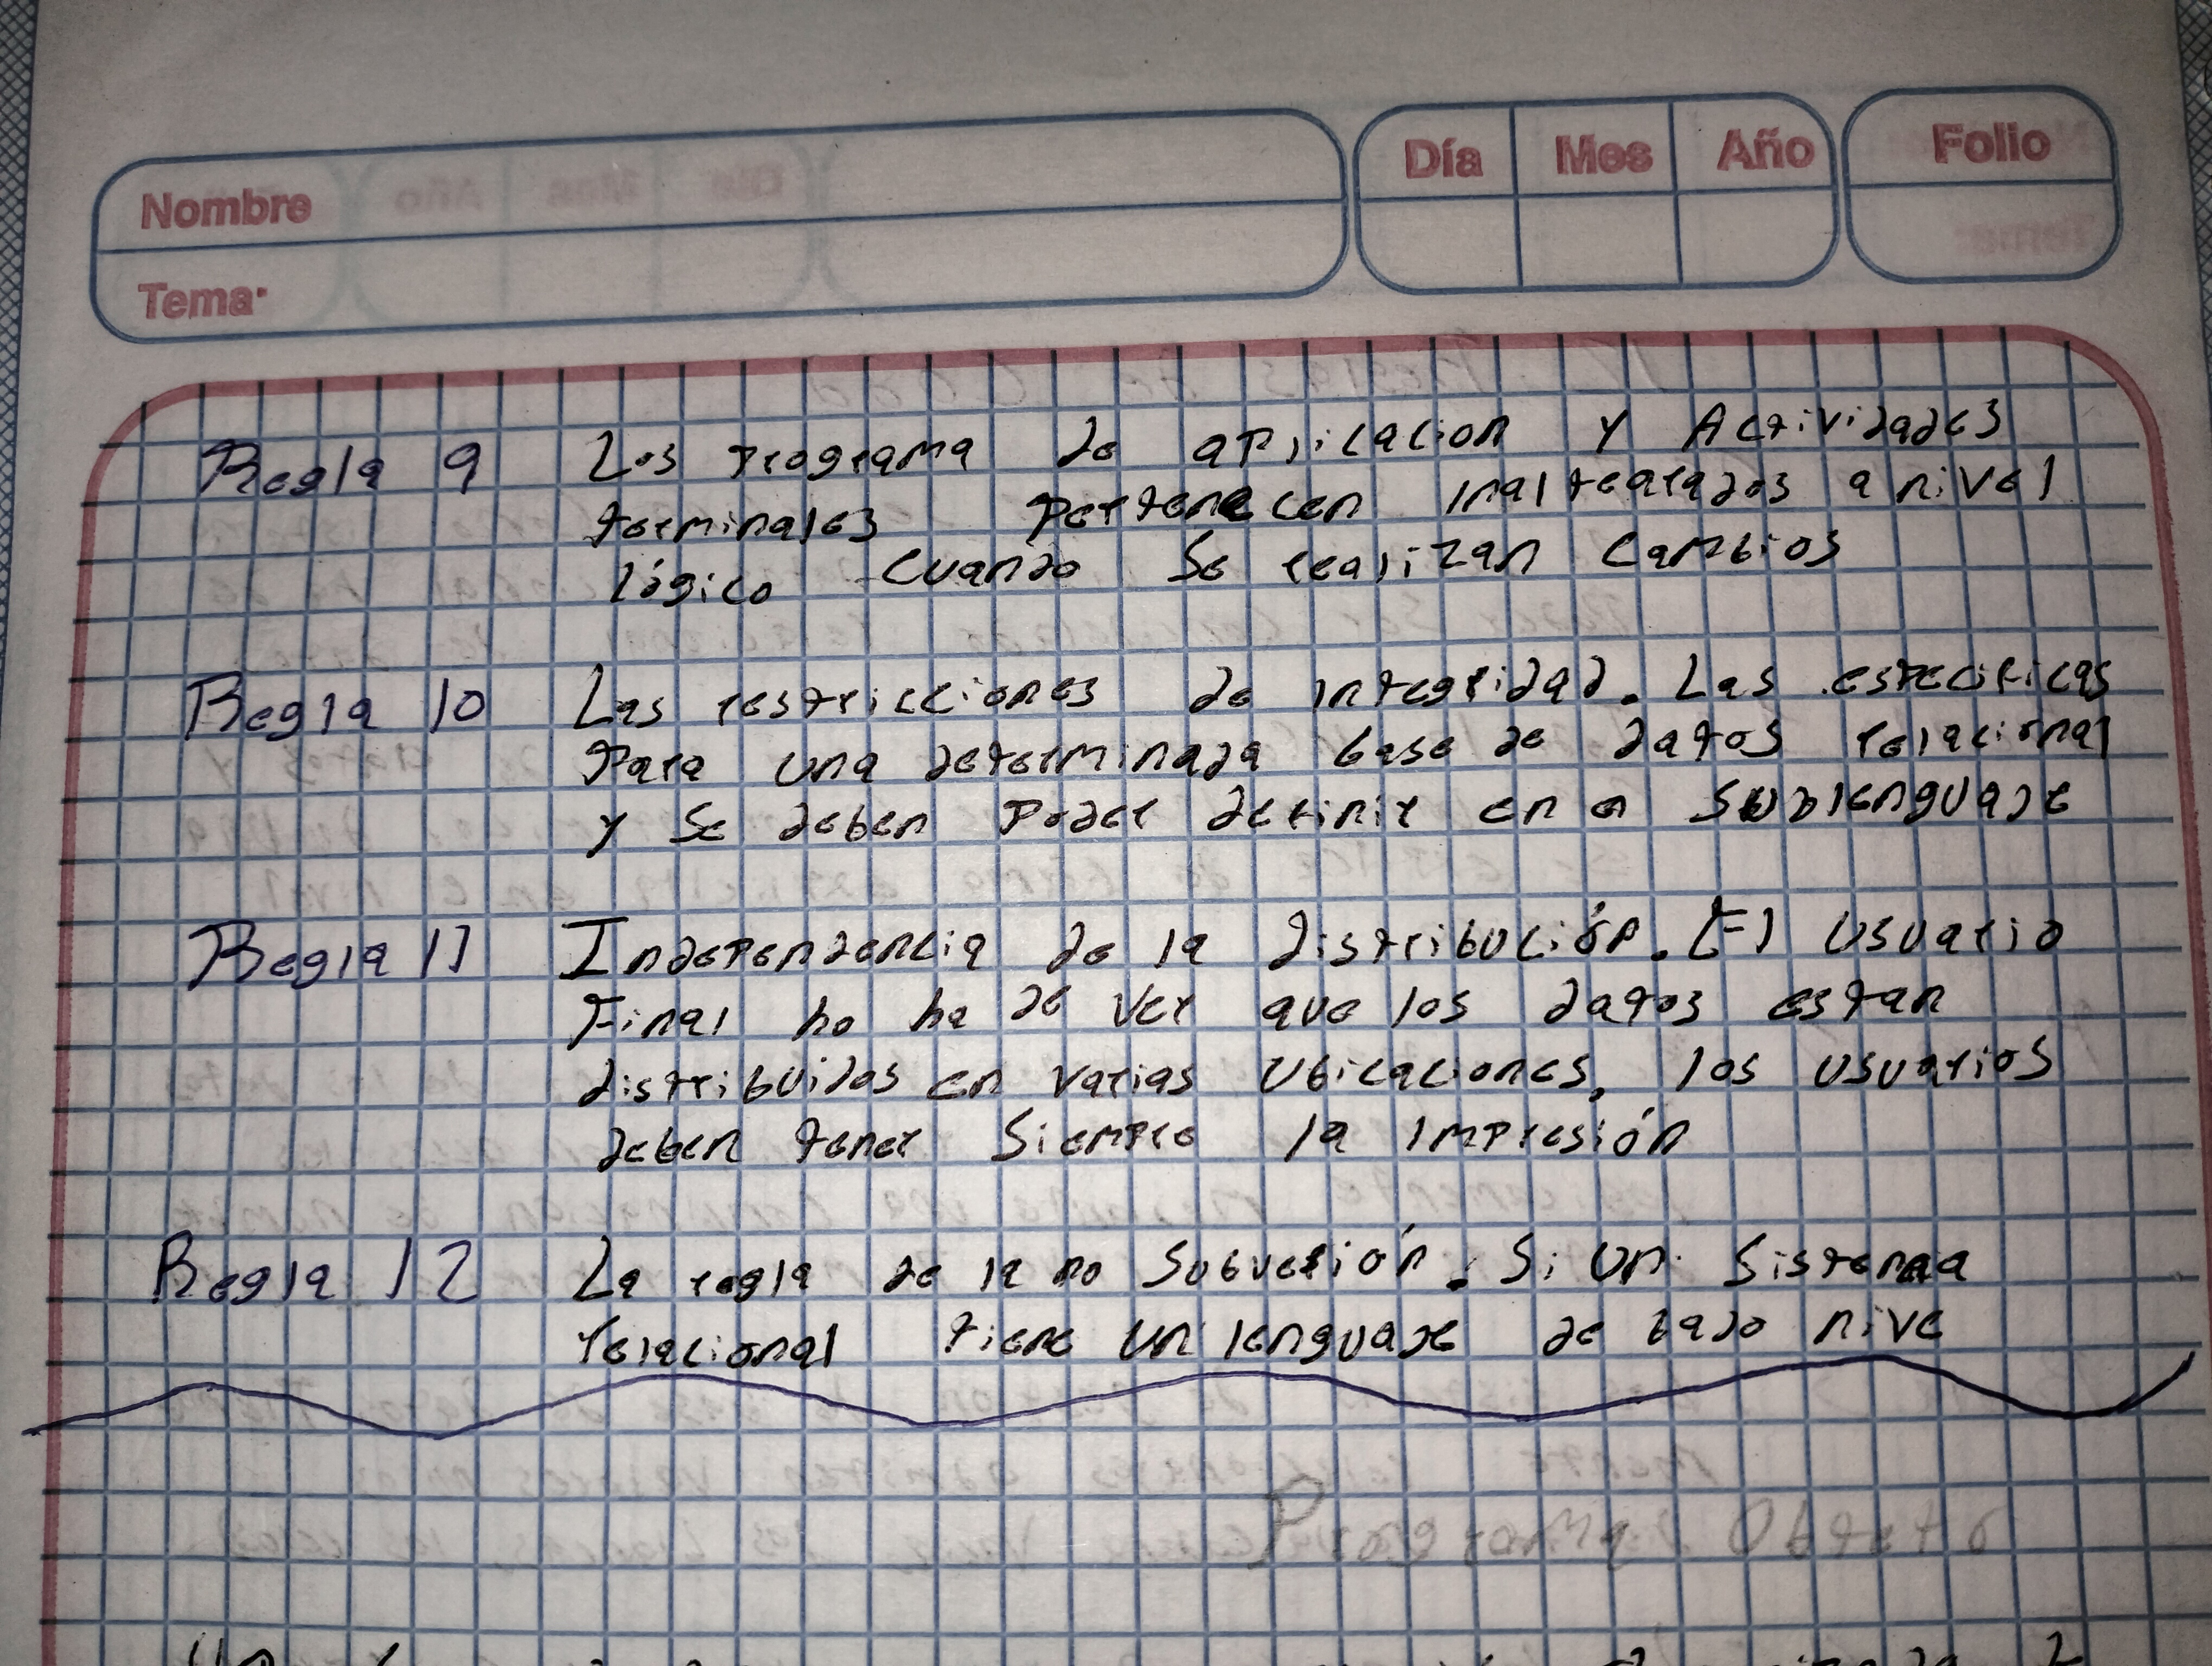 Día Mes Año Folio
Nombre
Tema:
Regla 9 Los programa de aplicacion y Actividades
terminales pertenecen inaltearados a nivel
lógico cuando se realizan cambios
Regla 10 Las restricciones de integridad. Las especificas
Para una determinada base de datos relacional
y se deben poder definir en e Sublenguaje
Regla 11 Independencia de la distribución. El usuario
Final no ha de ver que los datos estan
distribuidos en varias ubicaciones, los usuarios
deben tener siempre la impresión
Regla 12 La regla de la no subversión. Si un sistema
relacional tiene un lenguaje de bajo nive
Programa Objeto